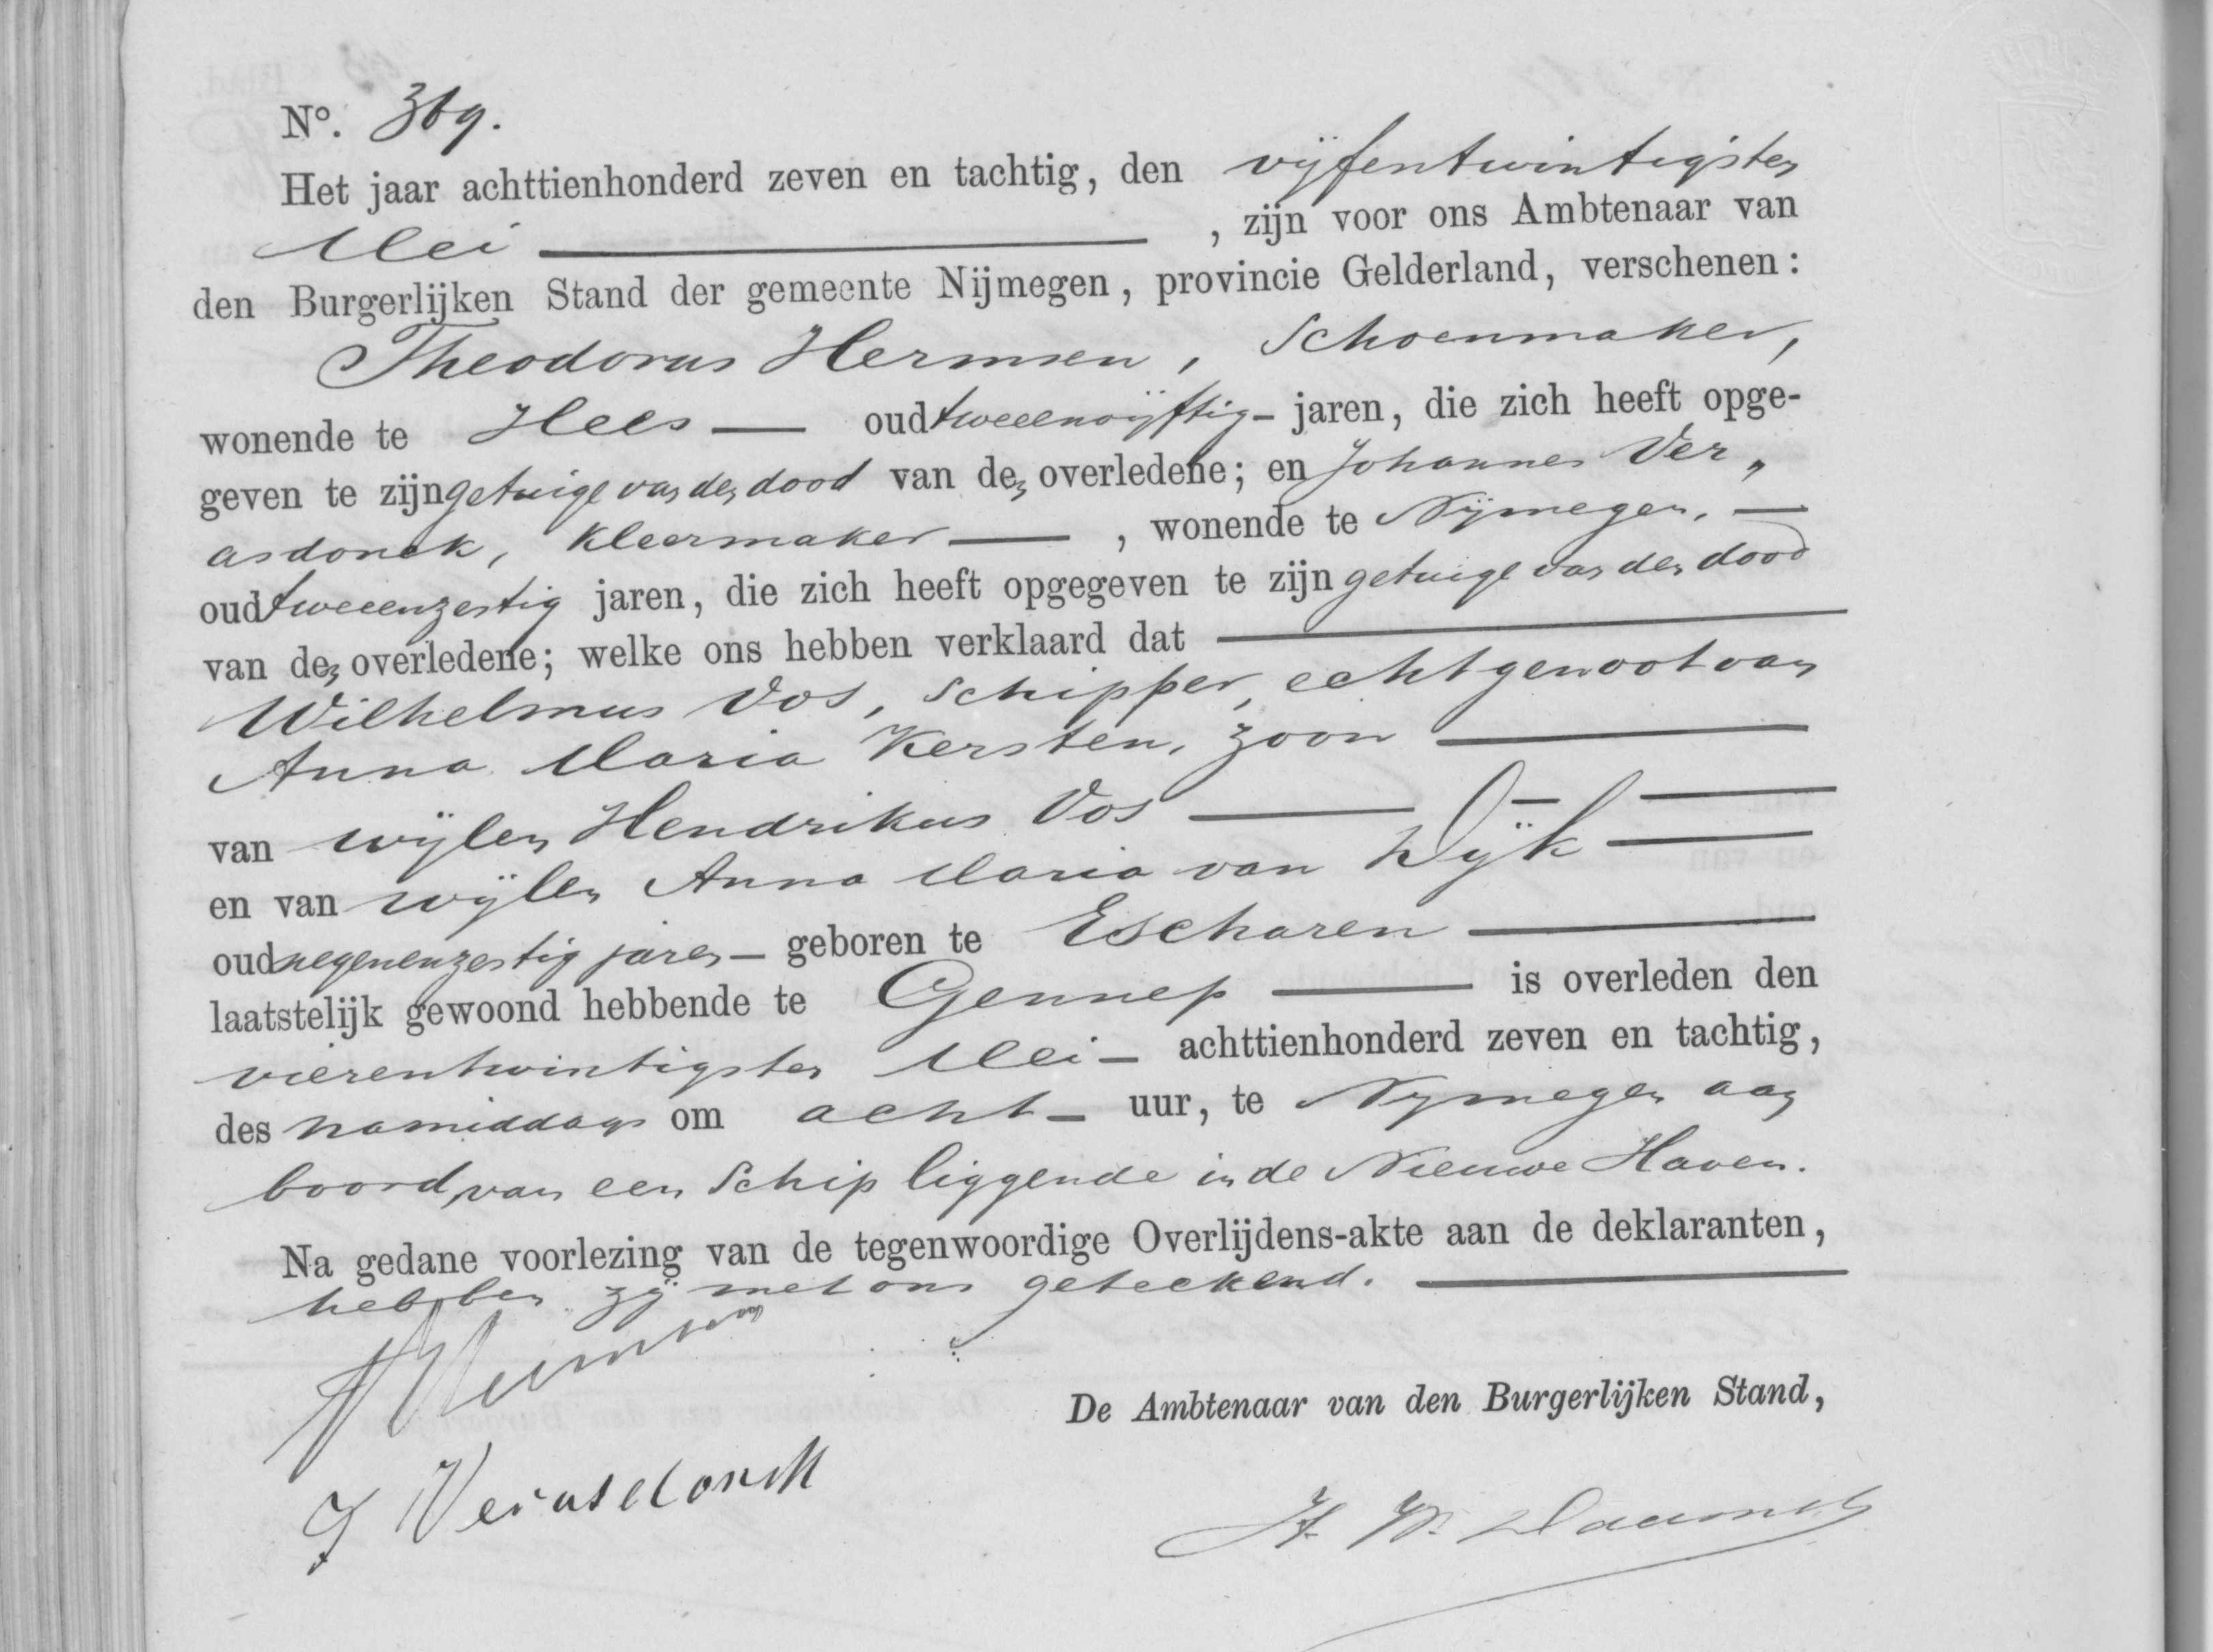 N°. 369.
Het jaar achttienhonderd zeven en tachtig, den vijfentwintigsten
Mei , zijn voor ons Ambtenaar van
den Burgerlijken Stand der gemeente Nijmegen, provincie Gelderland, verschenen:
Theodorus Hermsen, Schoenmaker,
wonende te Hees — oud tweeenvijftig - jaren, die zich heeft opge-
geven te zijn getuige van den dood van den overledene; en Johannes Ver„
asdonck, Kleermaker — , wonende te Nijmegen, —
oud tweeenzestig jaren, die zich heeft opgegeven te zijn getuige van den dood
van den overledene; welke ons hebben verklaard dat —
Wilhelmus Vos, Schipper, echtgenoot van
Anna Maria Kersten, zoon —
van wijlen Hendrikus Vos —
en van wijlen Anna Maria van Dijk —
oud negenenzestig jaren — geboren te Escharen —
laatstelijk gewoond hebbende te Gennep — is overleden den
vierentwintigsten Mei — achttienhonderd zeven en tachtig,
des namiddags om acht — uur, te Nijmegen aan
boord van een Schip liggende in de Nieuwe Haven.
Na gedane voorlezing van de tegenwoordige Overlijdens-akte aan de deklaranten,
hebben zij met ons geteekend. —
De Ambtenaar van den Burgerlijken Stand,
J Verasdonck